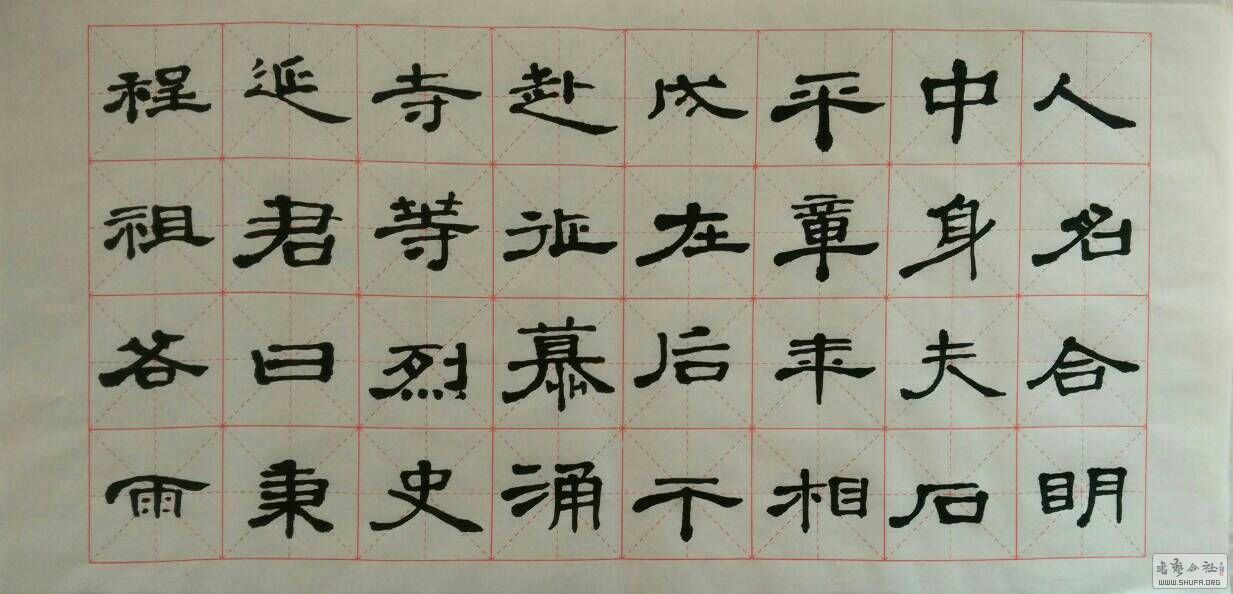 人名合明
中身夫石
平章年相
成在后不
赴征慕涌
寺等烈史
延君曰秉
程祖答雨
WWW.SHUFA.ORG